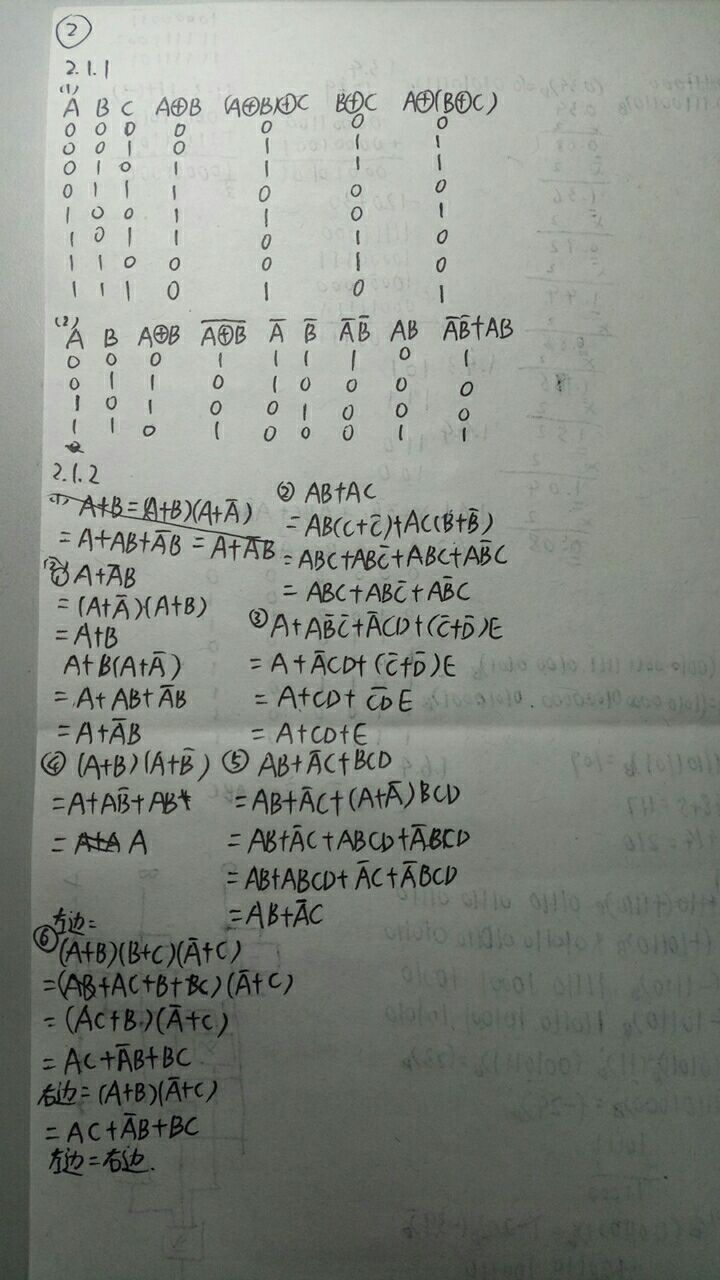 ②
2.1.1
(1)
A B C A⊕B (A⊕B)⊕C B⊕C A⊕(B⊕C)
0 0 0 0 0 0 0
0 0 1 0 1 1 1
0 1 0 1 1 1 1
0 1 1 1 0 0 0
1 0 0 1 1 0 1
1 0 1 1 0 1 0
1 1 0 0 0 1 0
1 1 1 0 1 0 1
(2)
A B A⊕B \overline{A⊕B} Ā B̄ ĀB̄ AB ĀB̄+AB
0 0 0 1 1 1 1 0 1
0 1 1 0 1 0 0 0 0
1 0 1 0 0 1 0 0 0
1 1 0 1 0 0 0 1 1
2.1.2
(1) A+B=(A+B)(A+Ā)
=A+AB+ĀB=A+ĀB
① A+ĀB
=(A+Ā)(A+B)
=A+B
A+B(A+Ā)
=A+AB+ĀB
=A+ĀB
② AB+AC
=AB(C+C̄)+AC(B+B̄)
=ABC+ABC̄+ABC+AB̄C
=ABC+ABC̄+AB̄C
③ A+AB̄C̄+ĀCD+(C̄+D̄)E
=A+ĀCD+(C̄+D̄)E
=A+CD+\overline{CD}E
=A+CD+E
④ (A+B)(A+B̄)
=A+AB̄+AB+
=A+A A
⑤ AB+ĀC+BCD
=AB+ĀC+(A+Ā)BCD
=AB+ĀC+ABCD+ĀBCD
=AB+ABCD+ĀC+ĀBCD
=AB+ĀC
左边=
⑥ (A+B)(B+C)(Ā+C)
=(AB+AC+B+BC)(Ā+C)
=(AC+B)(Ā+C)
=AC+ĀB+BC
右边=(A+B)(Ā+C)
=AC+ĀB+BC
左边=右边.